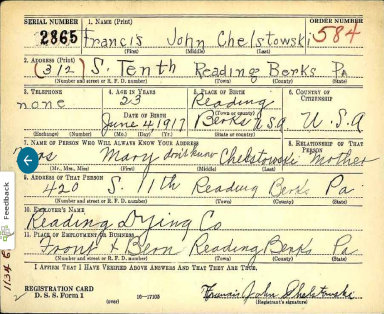 SERIAL NUMBER 1. NAME (Print) ORDER NUMBER
2865 Francis John Chelstowski 584
(First) (Middle) (Last)
2. ADDRESS (Print)
(312) S. Tenth Reading Berks Pa
(Number and street or R. F. D. number) (Town) (County) (State)
3. TELEPHONE 4. AGE IN YEARS 5. PLACE OF BIRTH 6. COUNTRY OF CITIZENSHIP
none 23 Reading
DATE OF BIRTH (Town or county)
June 4 1917 Berks U S A U. S. A
(Exchange) (Number) (Mo.) (Day) (Yr.) (State or country)
7. NAME OF PERSON WHO WILL ALWAYS KNOW YOUR ADDRESS 8. RELATIONSHIP OF THAT PERSON
Mary don't know Chelstowski Mother
(Mr., Mrs., Miss) (First) (Middle) (Last)
9. ADDRESS OF THAT PERSON
420 S. 11th Reading Berks Pa.
(Number and street or R. F. D. number) (Town) (County) (State)
10. EMPLOYER'S NAME
Reading Dying Co
11. PLACE OF EMPLOYMENT OR BUSINESS
Front + Bern Reading Berks Pa
(Number and street or R. F. D. number) (Town) (County) (State)
I AFFIRM THAT I HAVE VERIFIED ABOVE ANSWERS AND THAT THEY ARE TRUE.
REGISTRATION CARD
D. S. S. Form 1 (over) 16-17105 Francis John Chelstowski
(Registrant's signature)
Feedback